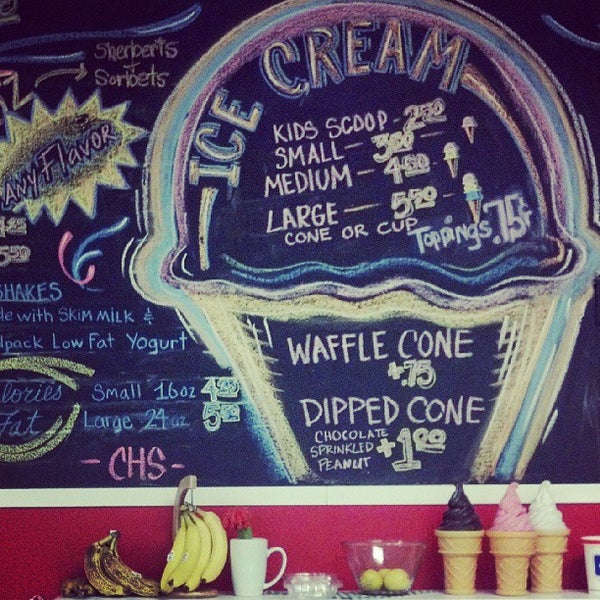 Sherberts
Sorbets
ANY FLAVOR
SHAKES
with SKIM MILK &
Low Fat Yogurt
Fat
Small 16oz
Large 24oz
- CHS -
ICE CREAM
KIDS SCOOP - 2.50
SMALL - 3.00
MEDIUM - 4.50
LARGE - 5.50
CONE OR CUP
Toppings .75¢
WAFFLE CONE
+.75
DIPPED CONE
CHOCOLATE
SPRINKLED
PEANUT
+1.00